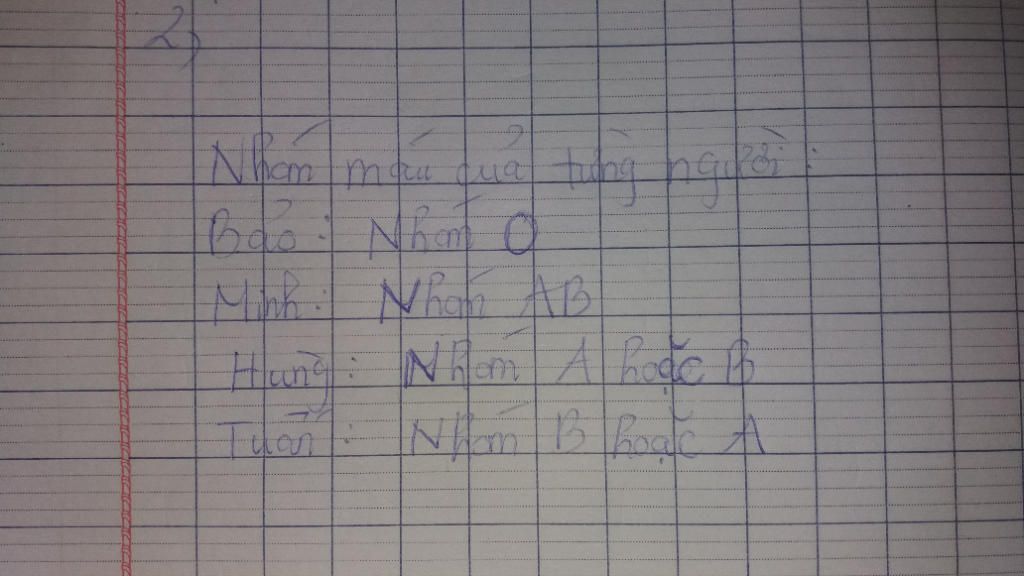 2)
Nhóm máu của từng người:
Bảo: Nhóm O
Minh: Nhóm AB
Hùng: Nhóm A hoặc B
Tuấn: Nhóm B hoặc A